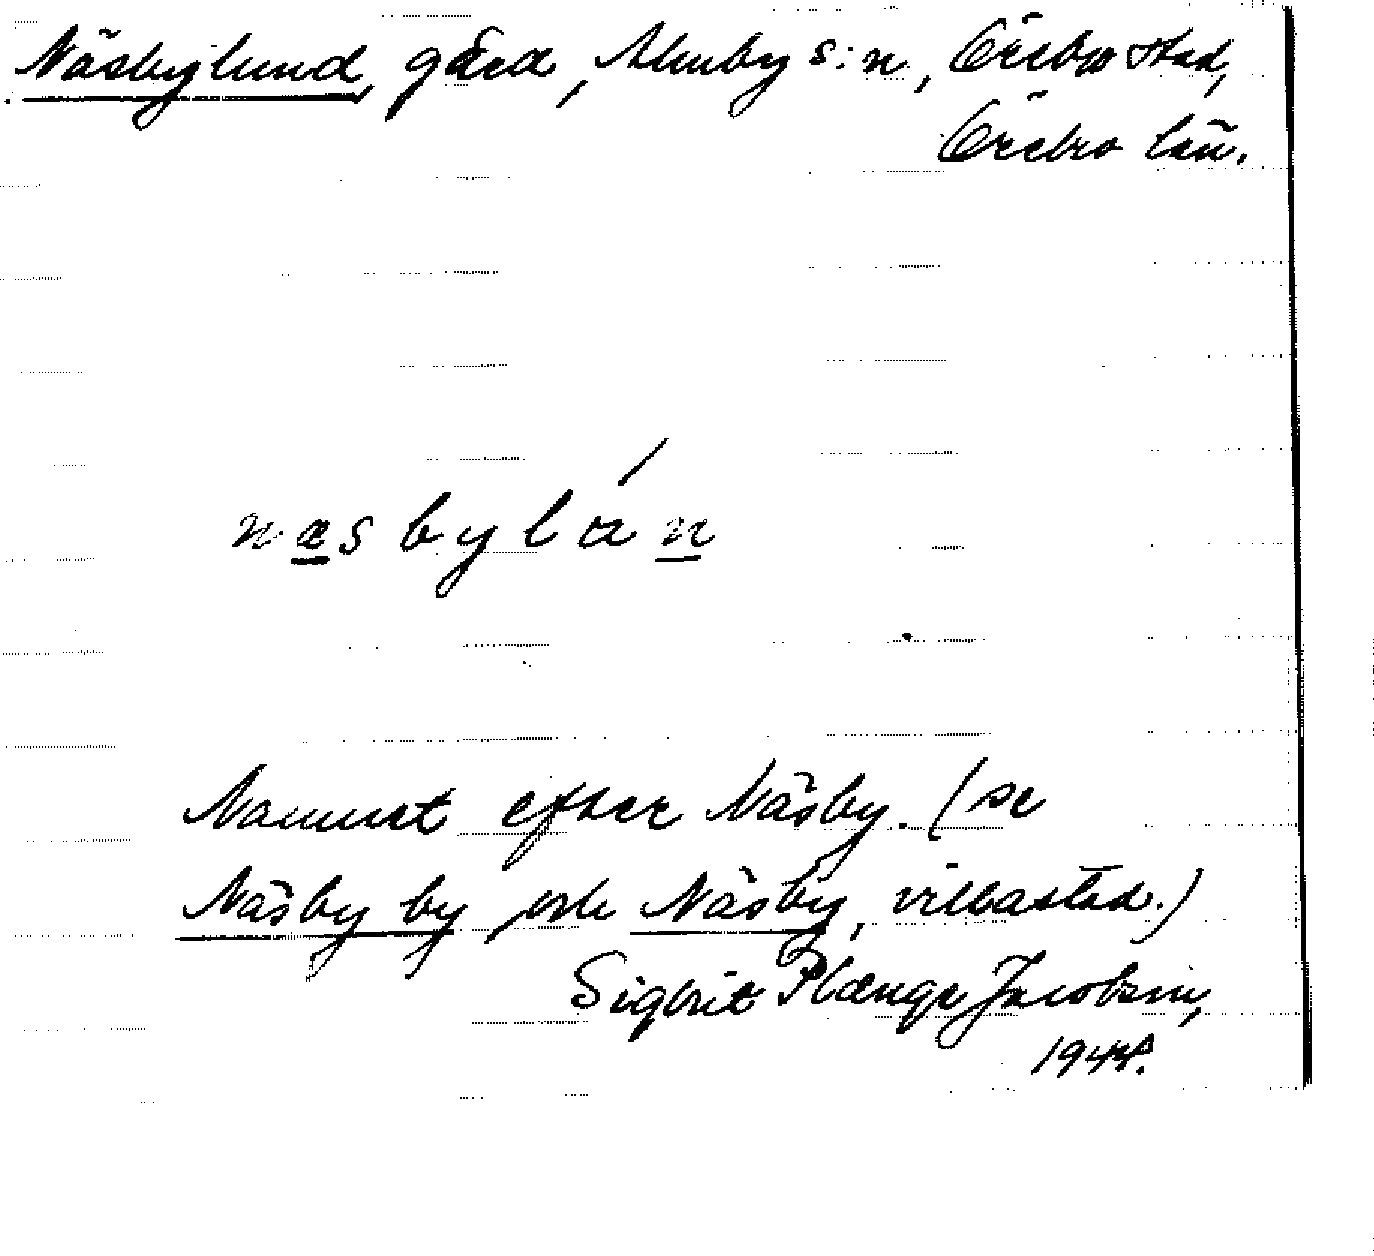 Näsbylund, gård, Almby s:n, Örebro stad,
Örebro län.
næsbylán
Namnet efter Näsby. (se
Näsby by och Näsby, villastad.)
Sigbrit Plænge Jacobson,
1944.